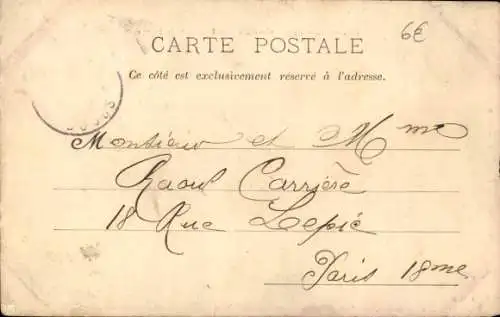 6€
CARTE POSTALE
Ce côté est exclusivement réservé à l'adresse.
Monsieur et Mme
Raoul Carrière
18 Rue Lepic
Paris 18me